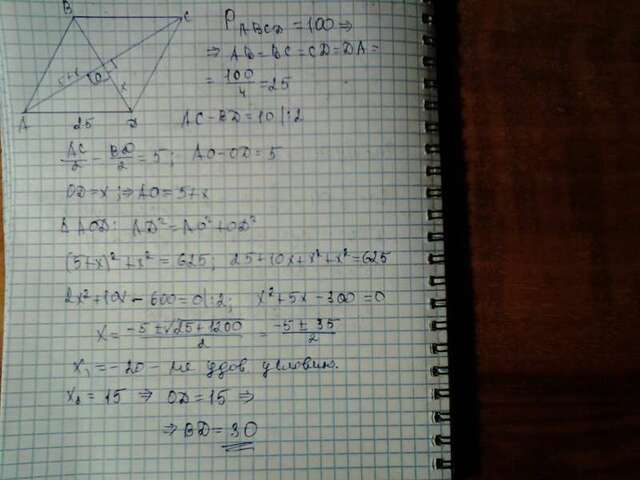 B C
5+x O x
A 25 D
P ABCD = 100 ⇒
⇒ AB = BC = CD = DA =
= 100/4 = 25
AC - BD = 10 |:2
AC/2 - BD/2 = 5; AO - OD = 5
OD = x; ⇒ AO = 5+x
Δ AOD: AD² = AO² + OD²
(5+x)² + x² = 625; 25+10x+x²+x² = 625
2x²+10x - 600 = 0 |:2; x²+5x - 300 = 0
x = (-5 ± √(25+1200))/2 = (-5 ± 35)/2
x₁ = -20 - не удов. условию.
x₂ = 15 ⇒ OD = 15 ⇒
⇒ BD = 30